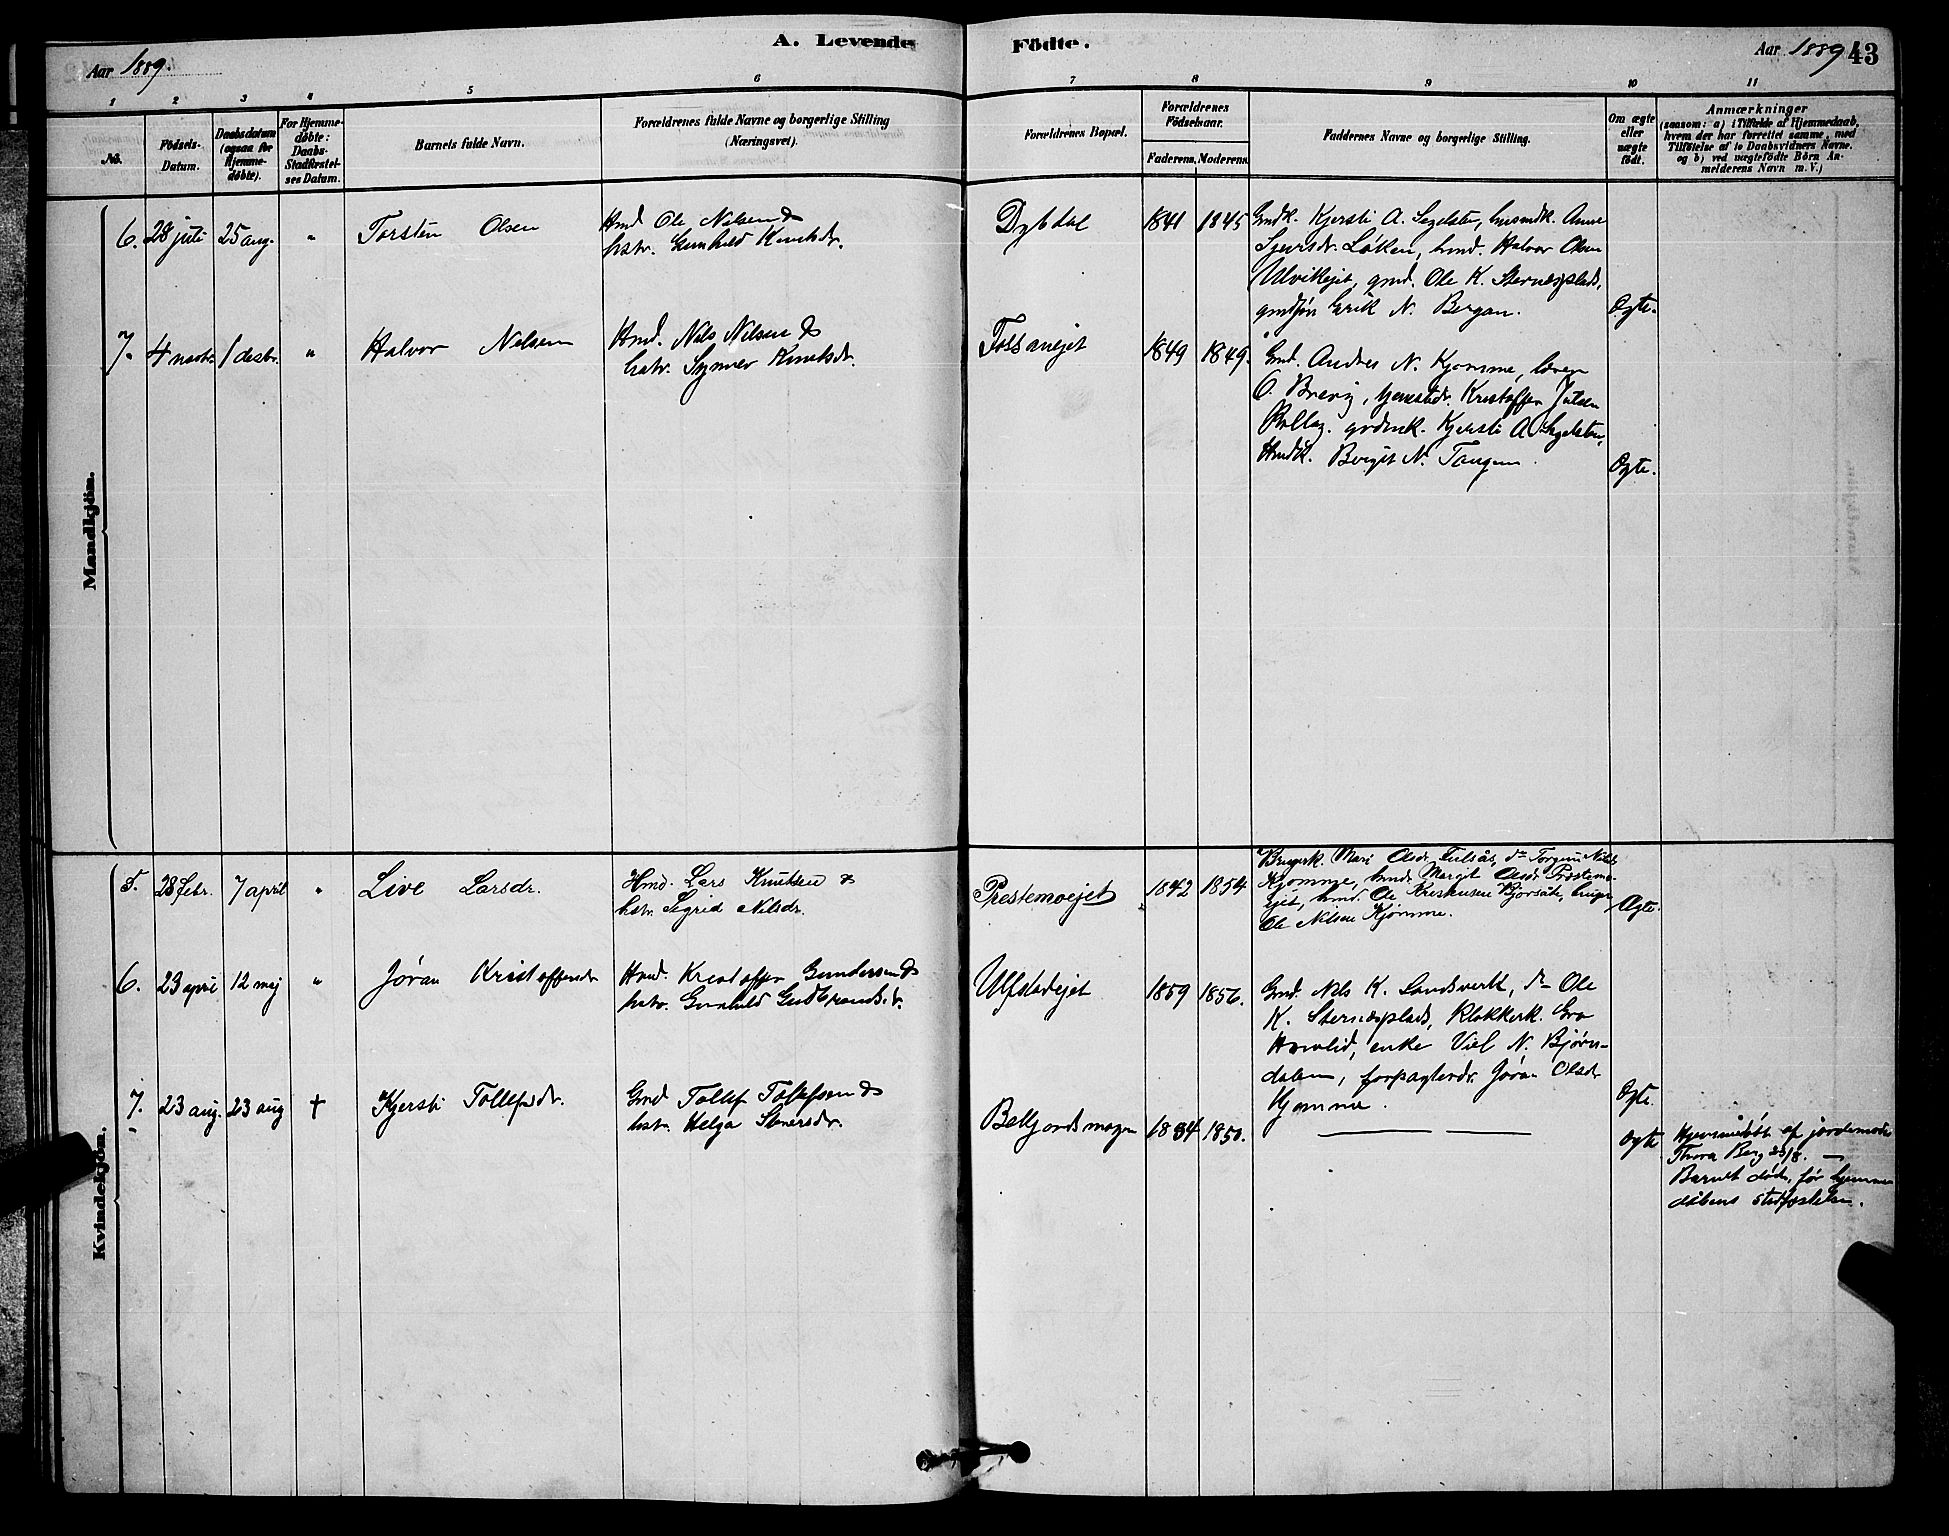 A. Levende Födte.
Aar 1889.
Aar 1889 43
1 2 3 4 5 6 7 8 9 10 11
No.
Födsels-
Datum.
Daabsdatum
(ogsaa for
Hjemme-
døbte).
For Hjemme-
døbte:
Daabs-
Stadfæstel-
ses Datum.
Barnets fulde Navn.
Forældrenes fulde Navne og borgerlige Stilling
(Næringsvei).
Forældrenes Bopæl.
Forældrenes
Födselsaar.
Faderens. Moderens.
Faddernes Navne og borgerlige Stilling.
Om ægte
eller
uægte
födt.
Anmærkninger
(saasom: a) i Tilfælde af Hjemmedaab,
hvem der har forrettet samme, med
Tilföielse af to Daabsvidners Navne.
og b) ved uægtefödte Börn An-
melderens Navn m. V.)
Mandkjön.
6. 28 juli 25 aug. " Torsten Olsen
Hmd Ole Nilsen &
hstr. Gunhild Knutsdr.
Dybdal 1841 1845
Gmdk. Kjersti A. Segelsten, husmdk. Anne
Syversdr. Løken, hmd. Halvor Olsen
Ulvikejet, gmd. Ole K. Sternesplads,
gmdsøn Erik N. Bergan.
Ægte.
7. 4 novbr. 1 desbr. " Halvor Nilsen
Hmd. Nils Nilsen &
hstr. Synnev Knutsdr.
Fossanejet 1849 1849.
Gmd. Andres N. Kjømme, lærer
O. Brevig, tjenestedr. Kristoffer Julsen
gmdk. Kjersti A. Segelsten,
Hmdk. Bergit N. Tangen.
Ægte.
Kvindekjön.
5. 28 febr. 7 april " Live Larsdr.
Hmd. Lars Knutsen &
hstr. Sigrid Nilsdr.
Prestemoejet 1842 1854
Brugerk. Mari Olsdr. Fulsås, do Torgun Nilsdr.
Kjømme, hmdk. Margit Olsdr. Prestemo-
ejet, hmd. Ole Kristensen Bjørsåte, bruger
Ole Nilsen Kjømme.
Ægte.
6. 23 april 12 maj " Jøran Kristoffersdr
Hmd. Kristoffer Gundersen &
hstr. Gunhild Gudbrandsdr.
Ulfstadejet 1859 1856.
Gmd. Nils K. Landsverk, do Ole
K. Sternesplads, Klokkerk. Gro
Haavlid, enke Viel N. Bjørn-
dalen, forpagterdr. Jøran Olsdr
Kjømme.
Ægte.
7. 23 aug. 23 aug † Kjersti Tollefsdr.
Gmd Tollef Tollefsen &
hstr. Helga Stenersdr.
Belgjordsmogen 1834 1850.
Ægte
Hjemmedøbt af jordemoder
Thora Berg 23/8. —
Barnet døde før hjemme-
dåbens stadfæstelse.